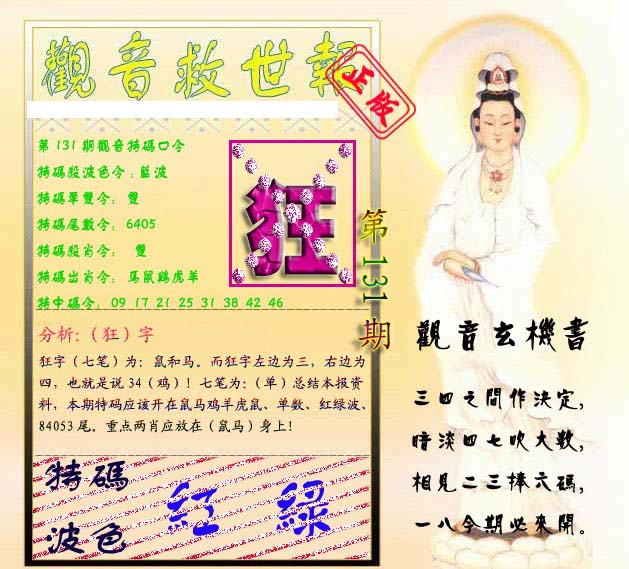 觀音救世報
正版
第131期觀音特碼口令
特碼殺波色令:藍波
特碼單雙令: 雙
特碼尾數令: 6405
特碼殺肖令: 雙
特碼出肖令: 馬鼠鷄虎羊
特中碼令: 09 17 21 25 31 38 42 46
狂
第131期
分析:(狂)字
狂字(七笔)为: 鼠和马。而狂字左边为三, 右边为
四, 也就是说 34 (鸡)! 七笔为:(单)总结本报资
料, 本期特码应该开在鼠马鸡羊虎鼠、单数、红绿波、
84053 尾。重点两肖应放在(鼠马)身上!
特碼
波色
紅 綠
觀音玄機書
三四之間作決定,
暗淡四七吹大數,
相見二三棒六碼,
一八令期必來開。